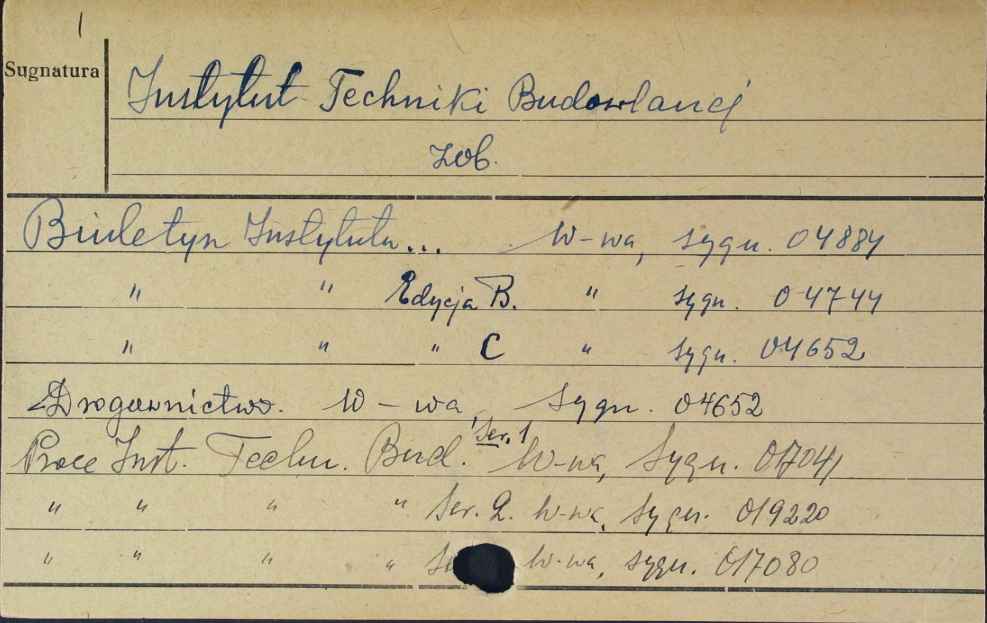 Sugnatura
Instytut Techniki Budowlanej
zob.
Biuletyn Instytutu... W-wa, sygn. 04884
" " Edycja B. " sygn. 04744
" " " C " sygn. 04652
Drogownictwo. W-wa, Sygn. 04652
Prace Inst. Techn. Bud. Ser. 1 W-wa, Sygn. 017041
" " " " Ser. 2. W-wa, Sygn. 019220
" " " " W-wa, sygn. 017080